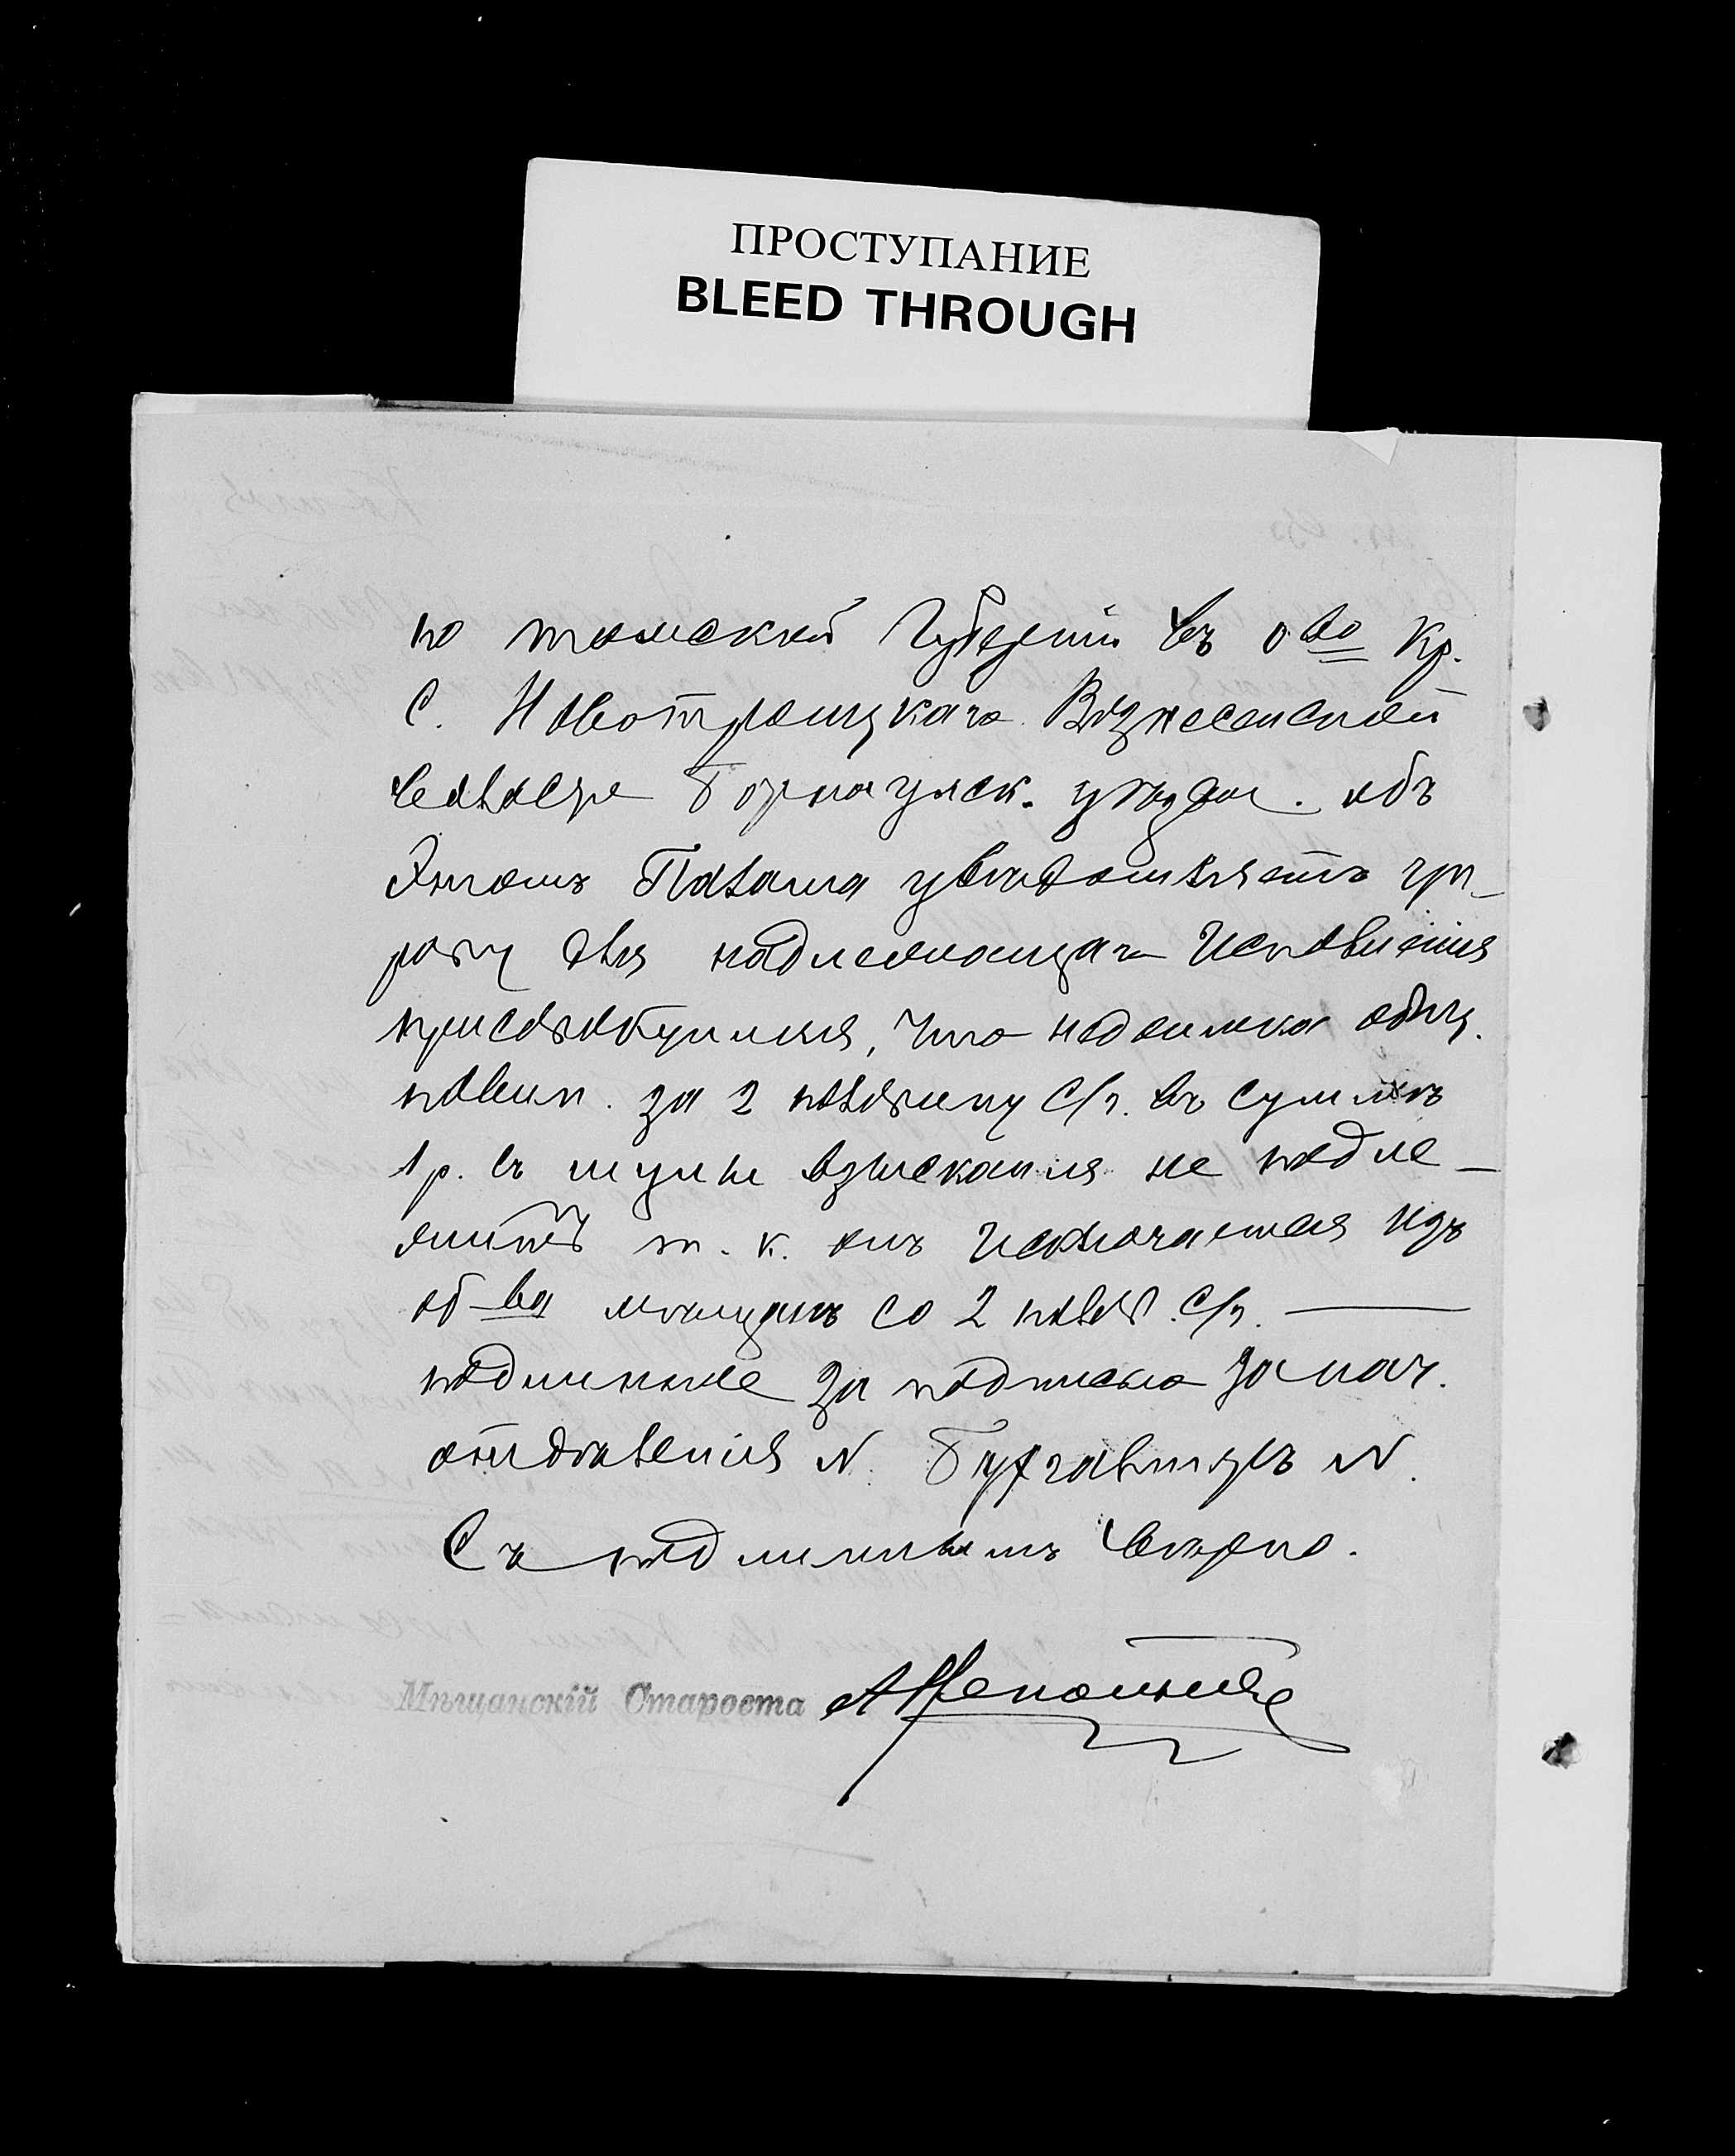 ПРОСТУПАНИЕ
BLEED THROUGH
по томской Губерніи въ о-во Кр.
С. Новотроицкаго Вознесенской
волости Борнаульск. уѣзда. объ
Этомъ Палата увѣдомляетъ уп-
раву для надлежащаго Исполненія
присовокупляя, что недоимка общ.
повин. за 2 половину с/г. въ суммѣ
1 р. съ души взысканія не подле-
житъ т. к. онъ исключается изъ
об-ва мѣщанъ со 2 полов. с/г.
подлинное за подписью За нач.
отдѣленія N. Бухгалтеръ N.
Съ подлиннымъ вѣрно.
Мѣщанскій Староста